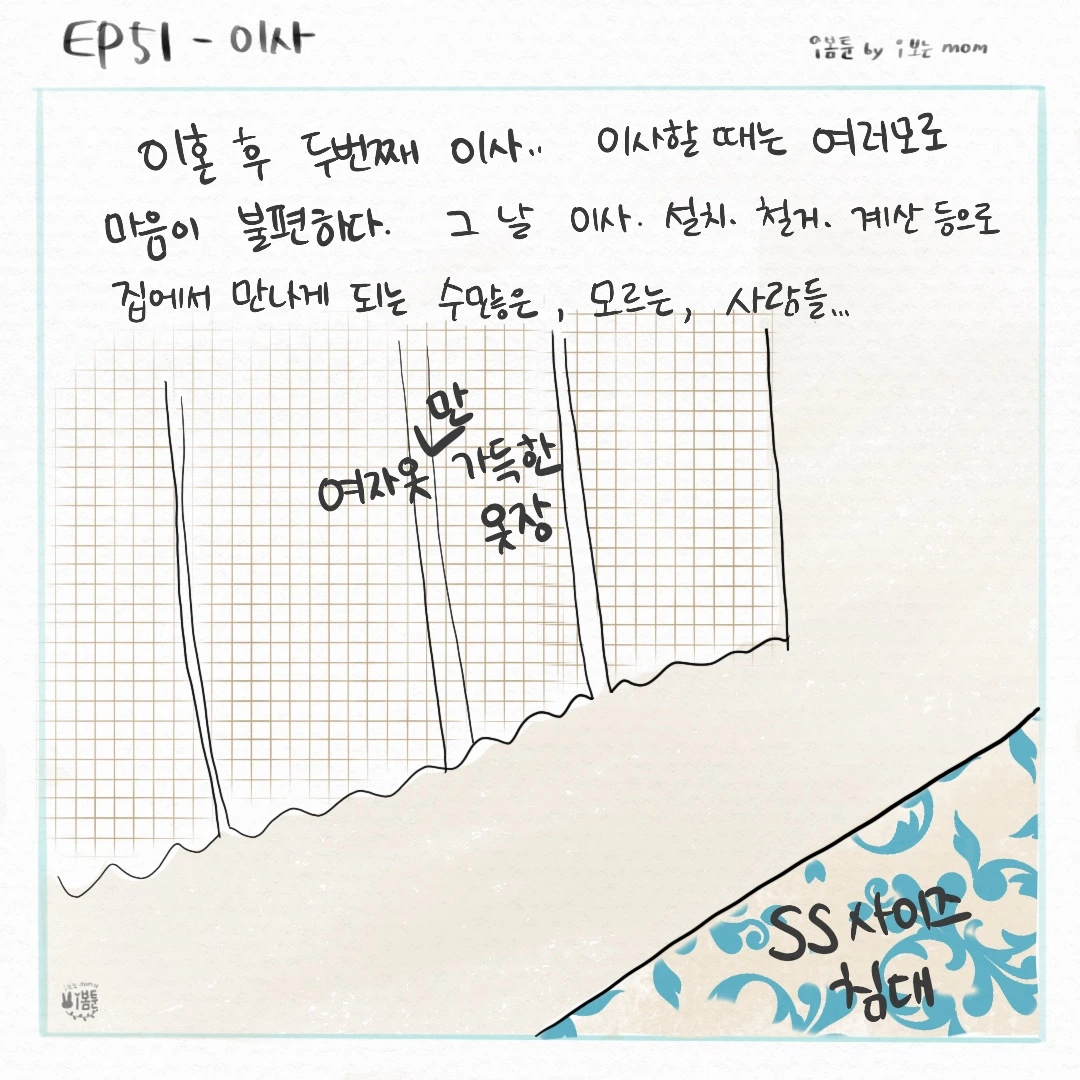 EP51 - 이사
우봄툰 by 우보는 mom
이혼 후 두번째 이사.. 이사할 때는 여러모로
마음이 불편하다. 그 날 이사. 설치. 철거. 계산 등으로
집에서 만나게 되는 수많은, 모르는, 사람들...
만
여자옷 가득한
옷장
SS 사이즈
침대